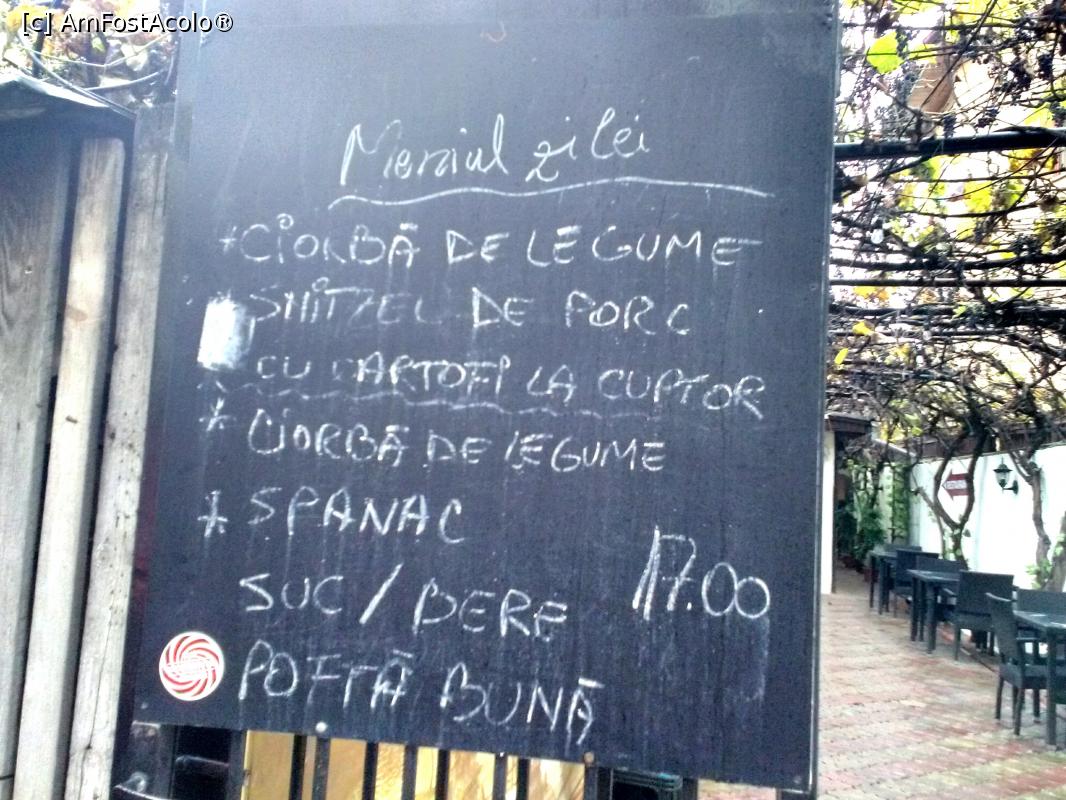 [c] AmFostAcolo®
Meniul zilei
*CIORBĂ DE LEGUME
* SNITZEL DE PORC
CU CARTOFI LA CUPTOR
* CIORBĂ DE LEGUME
* SPANAC
17.00
SUC / BERE
POFTĂ BUNĂ